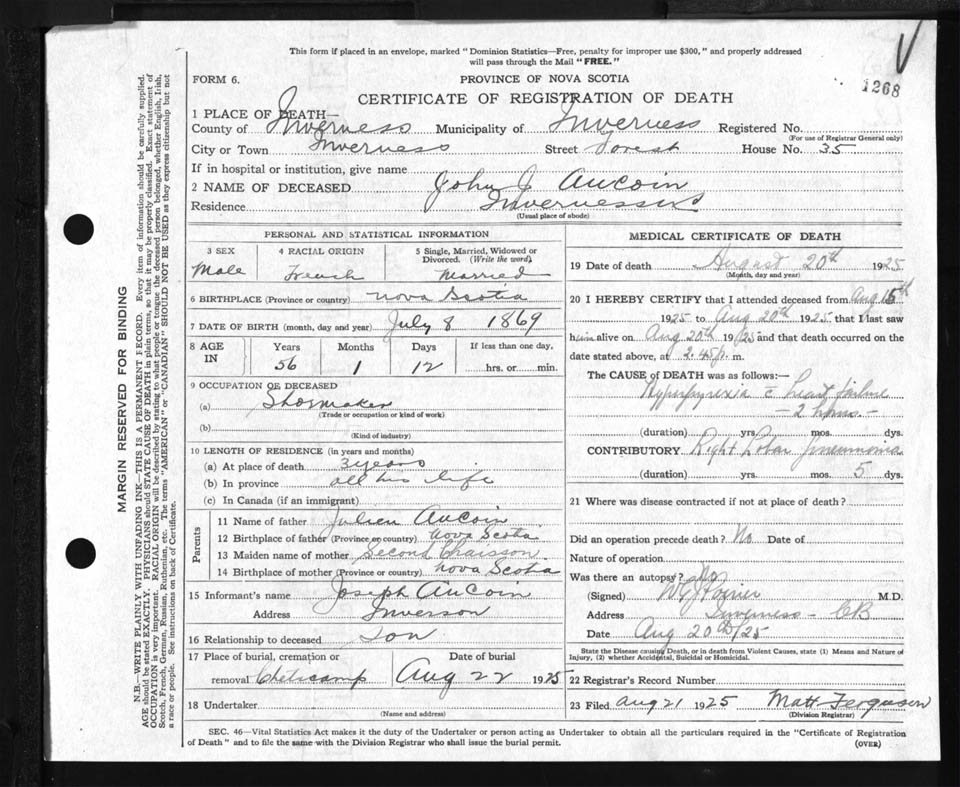 This form if placed in an envelope, marked "Dominion Statistics—Free, penalty for improper use $300," and properly addressed
will pass through the Mail "FREE."
FORM 6.
PROVINCE OF NOVA SCOTIA
1268
CERTIFICATE OF REGISTRATION OF DEATH
1 PLACE OF DEATH—
County of Inverness Municipality of Inverness Registered No.
(For use of Registrar General only)
City or Town Inverness Street Forest House No. 35
If in hospital or institution, give name
2 NAME OF DECEASED John J. Aucoin
Residence Inverness
(Usual place of abode)
PERSONAL AND STATISTICAL INFORMATION
3 SEX 4 RACIAL ORIGIN 5 Single, Married, Widowed or
Divorced. (Write the word)
Male French Married
6 BIRTHPLACE (Province or country) Nova Scotia
7 DATE OF BIRTH (month, day and year) July 8 1869
8 AGE
IN
Years Months Days If less than one day,
56 1 12 hrs. or min.
9 OCCUPATION OF DECEASED
(a) Shoemaker
(Trade or occupation or kind of work)
(b)
(Kind of industry)
10 LENGTH OF RESIDENCE (in years and months)
(a) At place of death 3 years
(b) In province all his life
(c) In Canada (if an immigrant)
Parents
11 Name of father Julien AuCoin
12 Birthplace of father (Province or country) Nova Scotia
13 Maiden name of mother Second Chaisson
14 Birthplace of mother (Province or country) Nova Scotia
15 Informant's name Joseph AuCoin
Address Inverson
16 Relationship to deceased Son
17 Place of burial, cremation or Date of burial
removal Cheticamp Aug 22 1925
18 Undertaker
(Name and address)
MEDICAL CERTIFICATE OF DEATH
19 Date of death August 20th 1925
(Month, day and year)
20 I HEREBY CERTIFY that I attended deceased from Aug 15th
1925 to Aug 20th 1925 that I last saw
him alive on Aug 20th 19/25 and that death occurred on the
date stated above, at 2.45 p. m.
The CAUSE of DEATH was as follows:—
Hyperpyrexia c̄ heart failure
— 2 hours. —
(duration) yrs. mos. dys.
CONTRIBUTORY Right Lobar Pneumonia
(duration) yrs. mos. 5 dys.
21 Where was disease contracted if not at place of death?
Did an operation precede death? No Date of
Nature of operation
Was there an autopsy? No
(Signed) Poirier M.D.
Address Inverness - CB
Date Aug 20th/25
State the Disease causing Death, or in death from Violent Causes, state (1) Means and Nature of
Injury, (2) whether Accidental, Suicidal or Homicidal.
22 Registrar's Record Number
23 Filed Aug 21 1925 Matt Ferguson
(Division Registrar)
SEC. 46—Vital Statistics Act makes it the duty of the Undertaker or person acting as Undertaker to obtain all the particulars required in the "Certificate of Registration
of Death" and to file the same with the Division Registrar who shall issue the burial permit. (OVER)
MARGIN RESERVED FOR BINDING
N.B.—WRITE PLAINLY WITH UNFADING INK—THIS IS A PERMANENT RECORD. Every item of information should be carefully supplied.
AGE should be stated EXACTLY. PHYSICIANS should STATE CAUSE OF DEATH in plain terms, so that it may be properly classified. Exact statement of
OCCUPATION is very important. RACIAL ORIGIN will be described by stating to what people or tongue the deceased person belonged, whether English, Irish,
Scotch, French, German, Russian, Ruthenian, etc. The terms "AMERICAN" or "CANADIAN" SHOULD NOT BE USED as they express citizenship but not
a race or people. See instructions on back of Certificate.